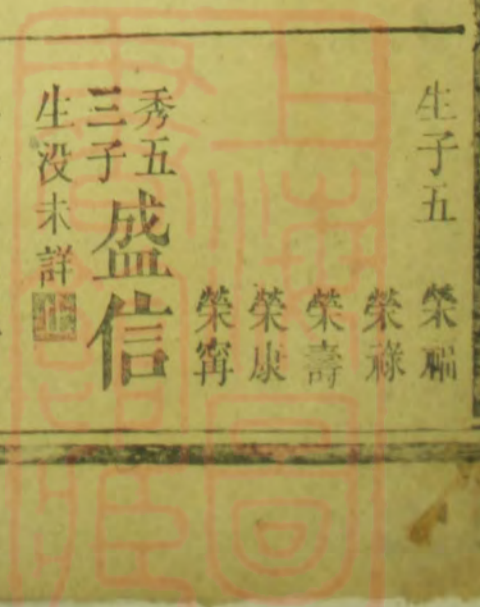 生子五 榮福
榮祿
榮壽
榮康
榮甯
秀五
三子盛信
生没未詳